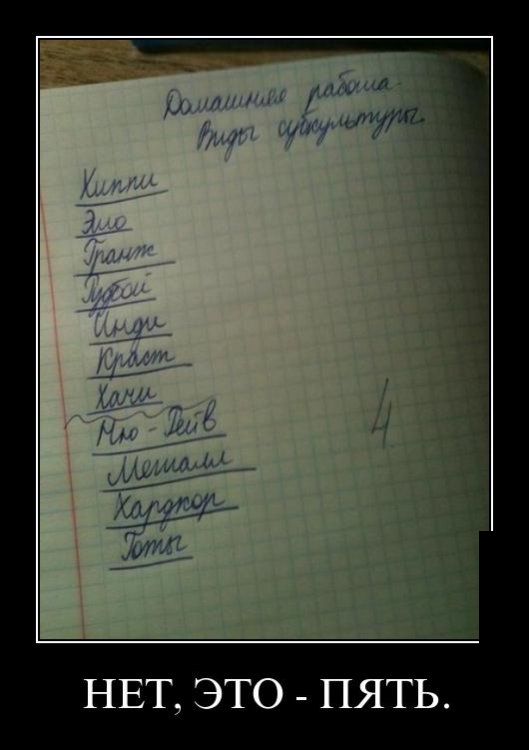 Домашняя работа.
Виды субкультуры.
Хиппи
Эмо
Гранж
Рудбой
Инди
Краст
Хачи
Ню-Рейв
Металл
Хардкор
Готы
4
НЕТ, ЭТО - ПЯТЬ.